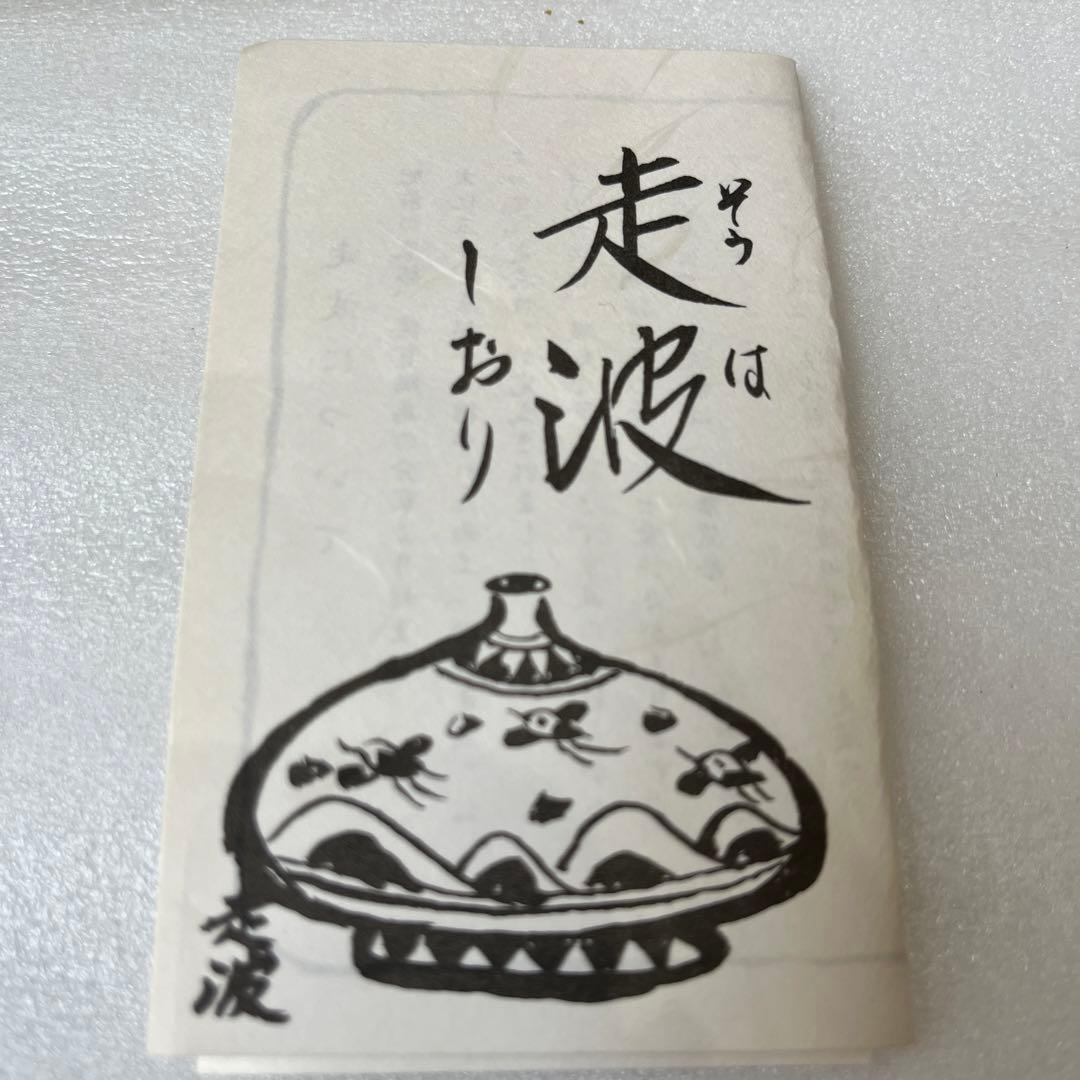 走波
そう は
しおり
走波